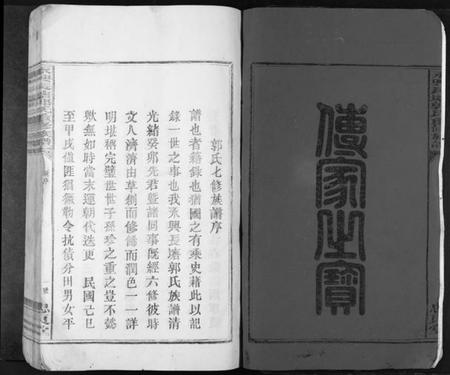 傳家之寶
郭氏七修族譜序
譜也者籍錄也猶國之有乘史藉此以記
錄一世之事也我永興長塘郭氏族譜清
光緒癸卯先君曁諸同事旣經六修彼時
文人濟濟由草創而修飾而潤色一一詳
明堪稱完璧世世子孫珍之重之豈不懿
歟無如時當末運朝代迭更 民國己巳
至甲戌僅匪猖獗勒令抗債分田男女平